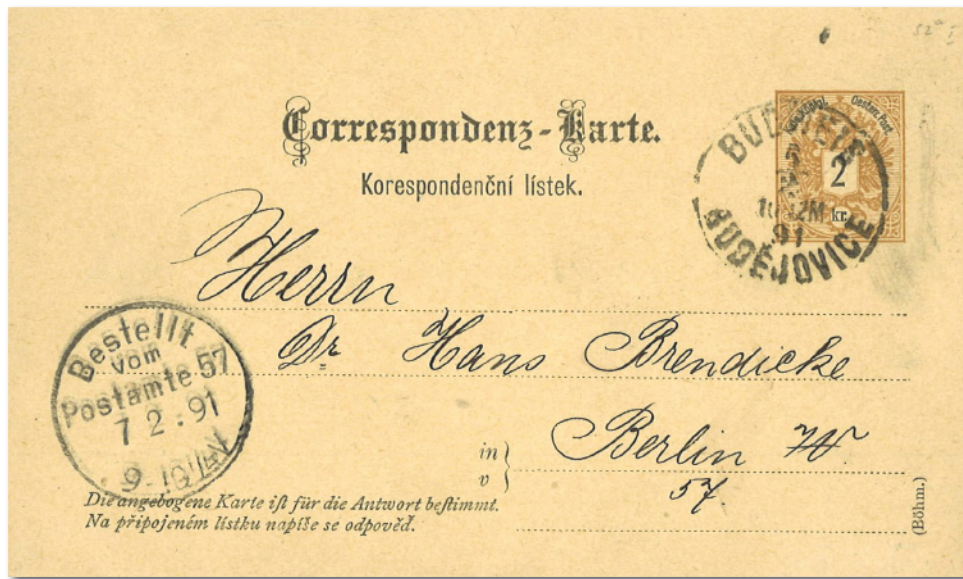 52a I
Correspondenz-Karte.
Korespondenční lístek.
Oesterr. Post.
2
kr.
BUDWEIS
91
BUDĚJOVICE
Herrn
Dr Hans Brendicke
in
v
Berlin W
57.
Bestellt
vom
Postamte 57
7 2 : 91
Die angebogene Karte iſt für die Antwort beſtimmt.
Na připojeném lístku napíše se odpověď.
(Böhm.)